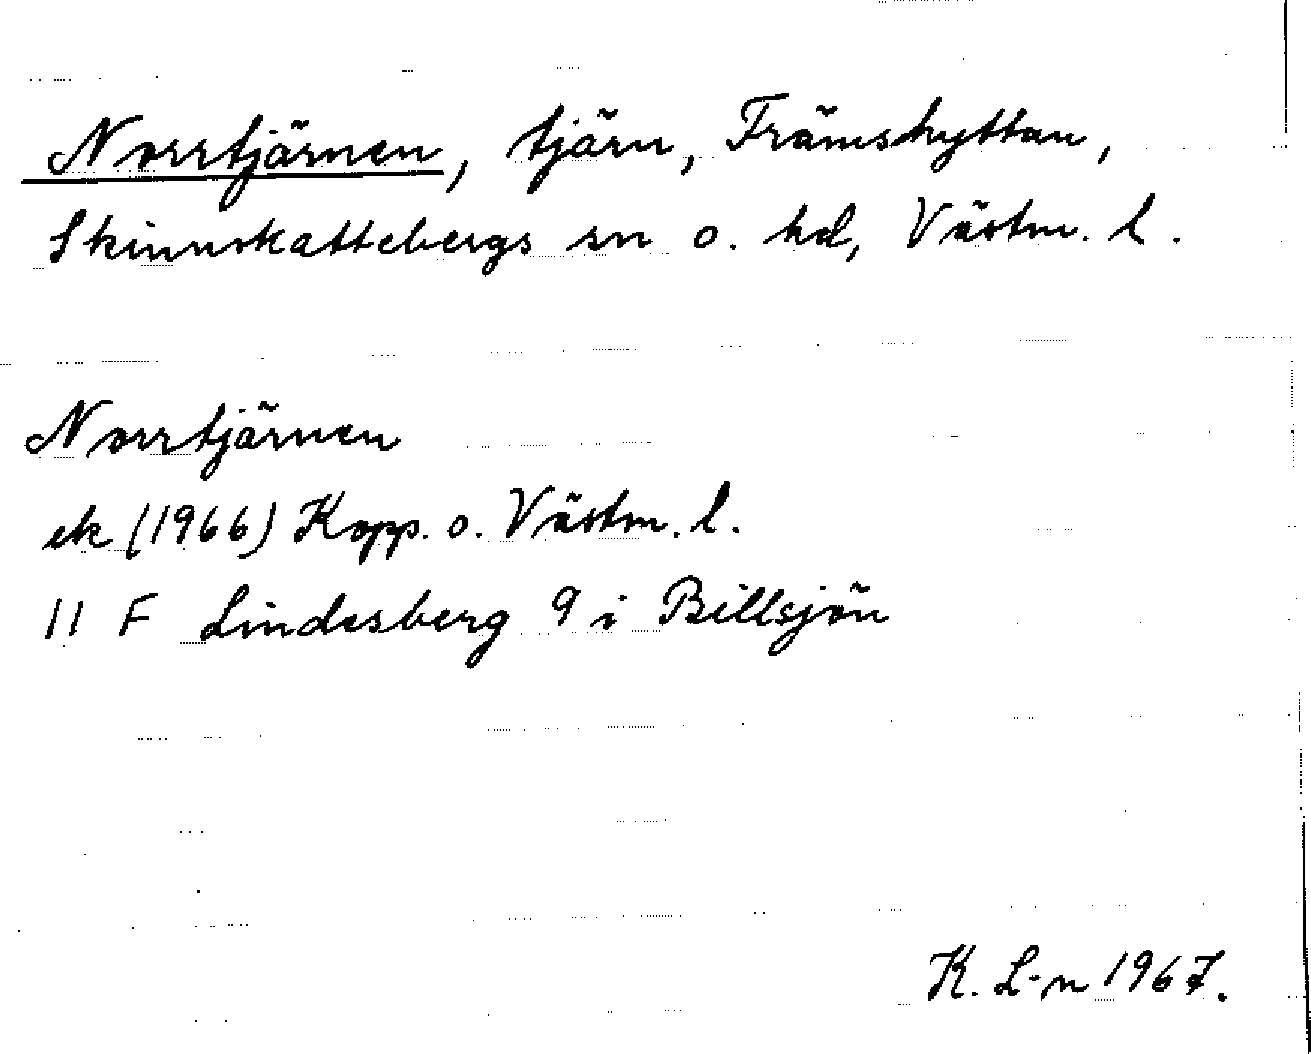 Norrtjärnen, tjärn, Främshyttan,
Skinnskattebergs sn o. hd, Västm. l.
Norrtjärnen
ek (1966) Kopp. o. Västm. l.
11 F Lindesberg 9 i Billsjön
K. L-n 1967.